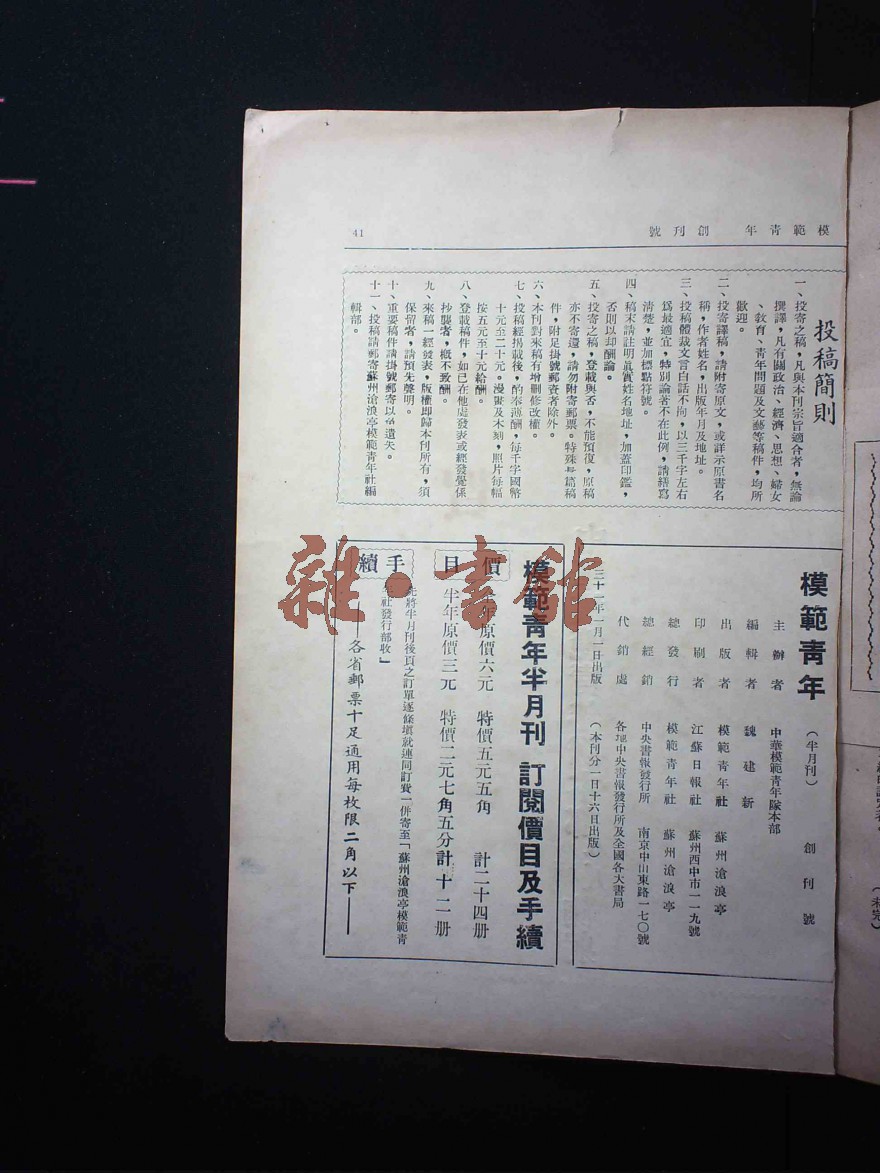 模範青年 創刊號
41
投稿簡則
一、投寄之稿，凡與本刊宗旨適合者，無論
撰譯，凡有關政治、經濟、思想、婦女
、敎育、青年問題及文藝等稿件，均所
歡迎。
二、投寄譯稿，請附寄原文，或詳示原書名
稱，作者姓名，出版年月及地址。
三、投稿體裁文言白話不拘，以三千字左右
爲最適宜，特別論著不在此例，請繕寫
清楚，並加標點符號。
四、稿末請註明眞實姓名地址，加蓋印鑑，
否則以却酬論。
五、投寄之稿，登載與否，不能預復，原稿
亦不寄還，請勿附寄郵票。特殊長篇稿
件，附足掛號郵資者除外。
六、本刊對來稿有增删修改權。
七、投稿經揭載後，酌奉薄酬，每千字國幣
十元至二十元。漫畫及木刻，照片每幅
按五元至十元給酬。
八、登載稿件，如已在他處發表或經發覺係
抄襲者，概不致酬。
九、來稿一經發表，版權即歸本刊所有，須
保留者，請預先聲明。
十、重要稿件請掛號郵寄以免遺失。
十一、投稿請郵寄蘇州滄浪亭模範青年社編
輯部。
模範青年 （半月刊） 創刊號
主辦者 中華模範青年隊本部
編輯者 魏建新
出版者 模範青年社 蘇州滄浪亭
印刷者 江蘇日報社 蘇州西中市一一九號
總發行 模範青年社 蘇州滄浪亭
總經銷 中央書報發行所 南京中山東路一七〇號
代銷處 各地中央書報發行所及全國各大書局
三十一年一月一日出版 （本刊分一日十六日出版）
模範青年半月刊 訂閱價目及手續
價目
年原價六元 特價五元五角 計二十四册
半年原價三元 特價二元七角五分計十二册
手續
先將半月刊後頁之訂單逐條塡就連同訂費一併寄至「蘇州滄浪亭模範青
年社發行部收」
——各省郵票十足通用每枚限二角以下——
雜·書館
（未完）